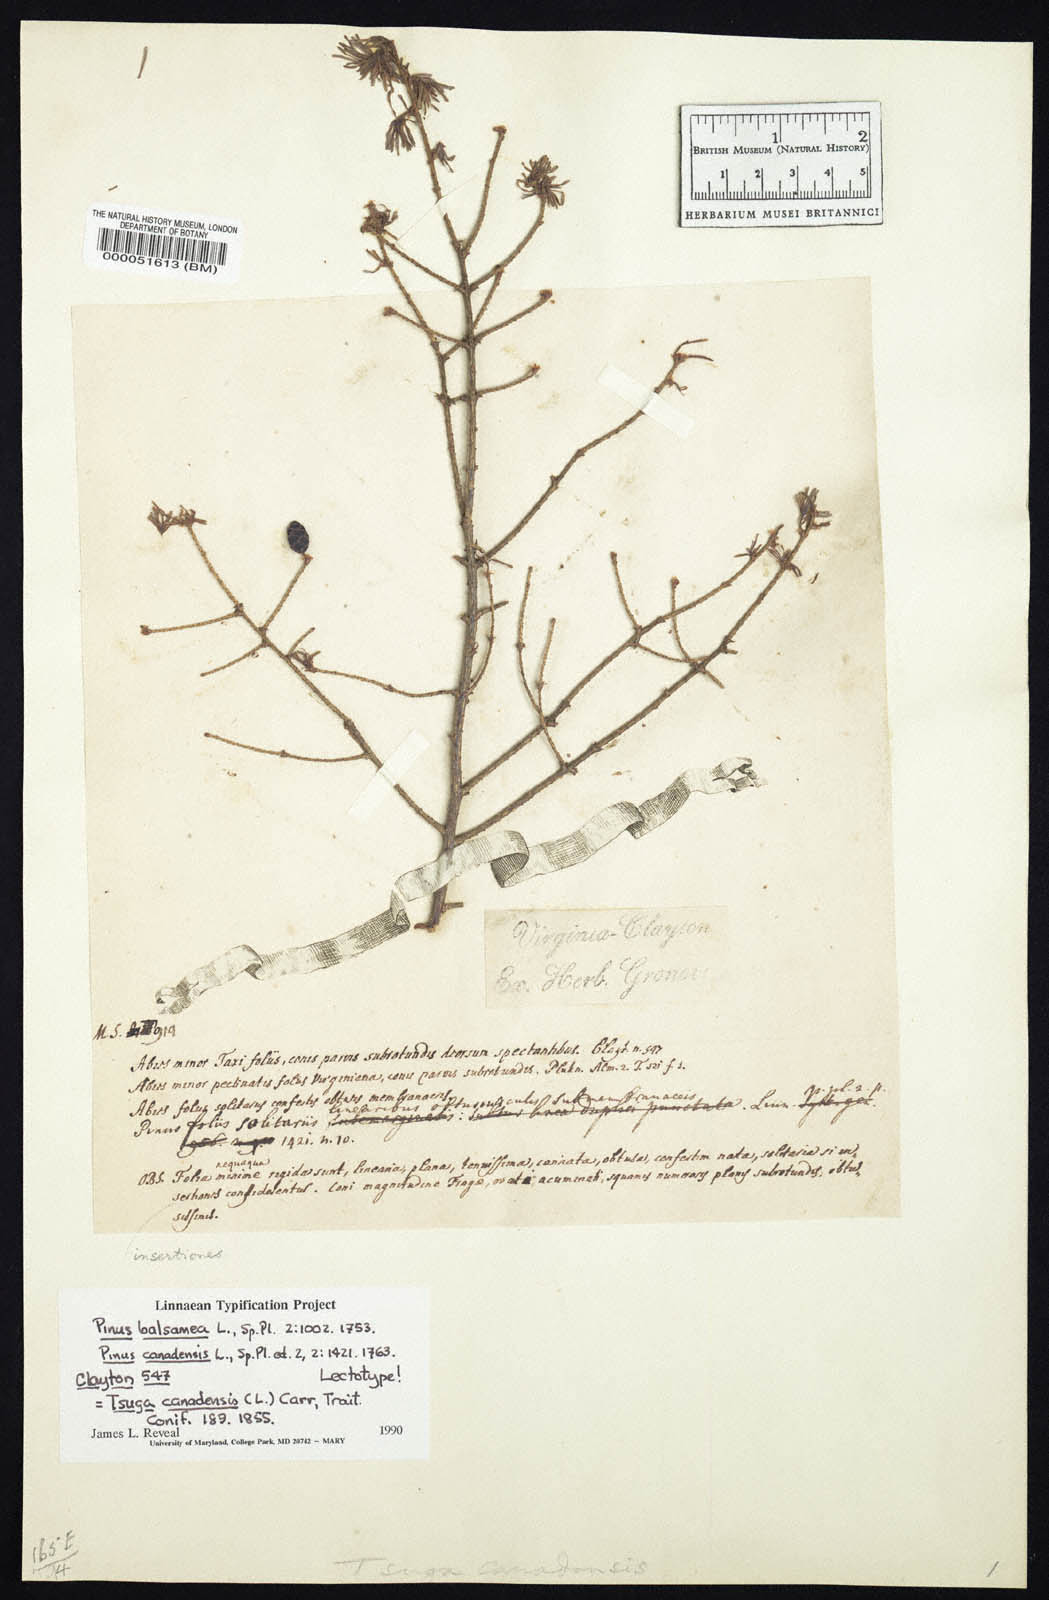 1
THE NATURAL HISTORY MUSEUM, LONDON
DEPARTMENT OF BOTANY
000051613 (BM)
1 2
BRITISH MUSEUM (NATURAL HISTORY)
1 2 3 4 5
HERBARIUM MUSEI BRITANNICI
Virginia-Clayton
Ex. Herb. Gronov
M.S. 919
Abies minor Taxi foliis, conis parvis subrotundis deorsum spectantibus. Clayt. n. 547
Abies minor pectinatis foliis Virginiana, conis parvis subrotundis. Plukn. Alm. 2. T. 121 f. 1.
Abies foliis solitariis confertis obtusis membranaceis
linearibus obtusiusculis submembranaceis
Pinus foliis solitariis submarginatis: subtus linea duplici punctata. Linn. sp. pl. 2. p.
1421. n. 10.
nequaqua
OBS. Folia minime rigida sunt, linearia, plana, tenuissima, carinata, obtusa, confertim nata, solitaria si in-
sertiones considerentur. Coni magnitudine Fragæ, ovati acuminati, squamis numerosis planis subrotundis, obtu-
sissimis.
insertiones
Linnaean Typification Project
Pinus balsamea L., Sp. Pl. 2:1002. 1753.
Pinus canadensis L., Sp. Pl. ed. 2, 2:1421. 1763.
Clayton 547 Lectotype!
= Tsuga canadensis (L.) Carr, Trait.
Conif. 189. 1855.
James L. Reveal 1990
University of Maryland, College Park, MD 20742 – MARY
165 E
14
Tsuga canadensis
1